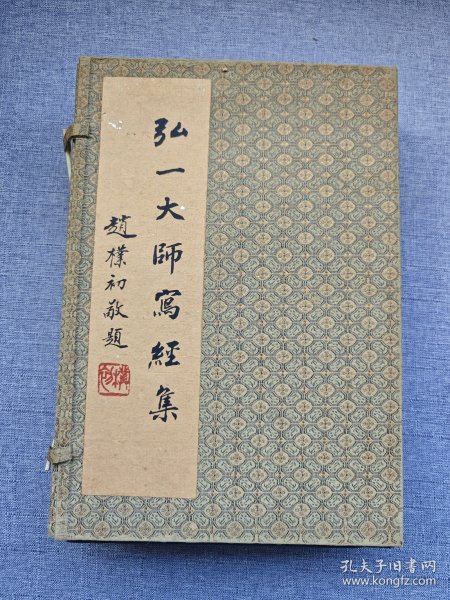 弘一大師寫經集
趙樸初敬題
孔夫子旧书网
www.kongfz.com